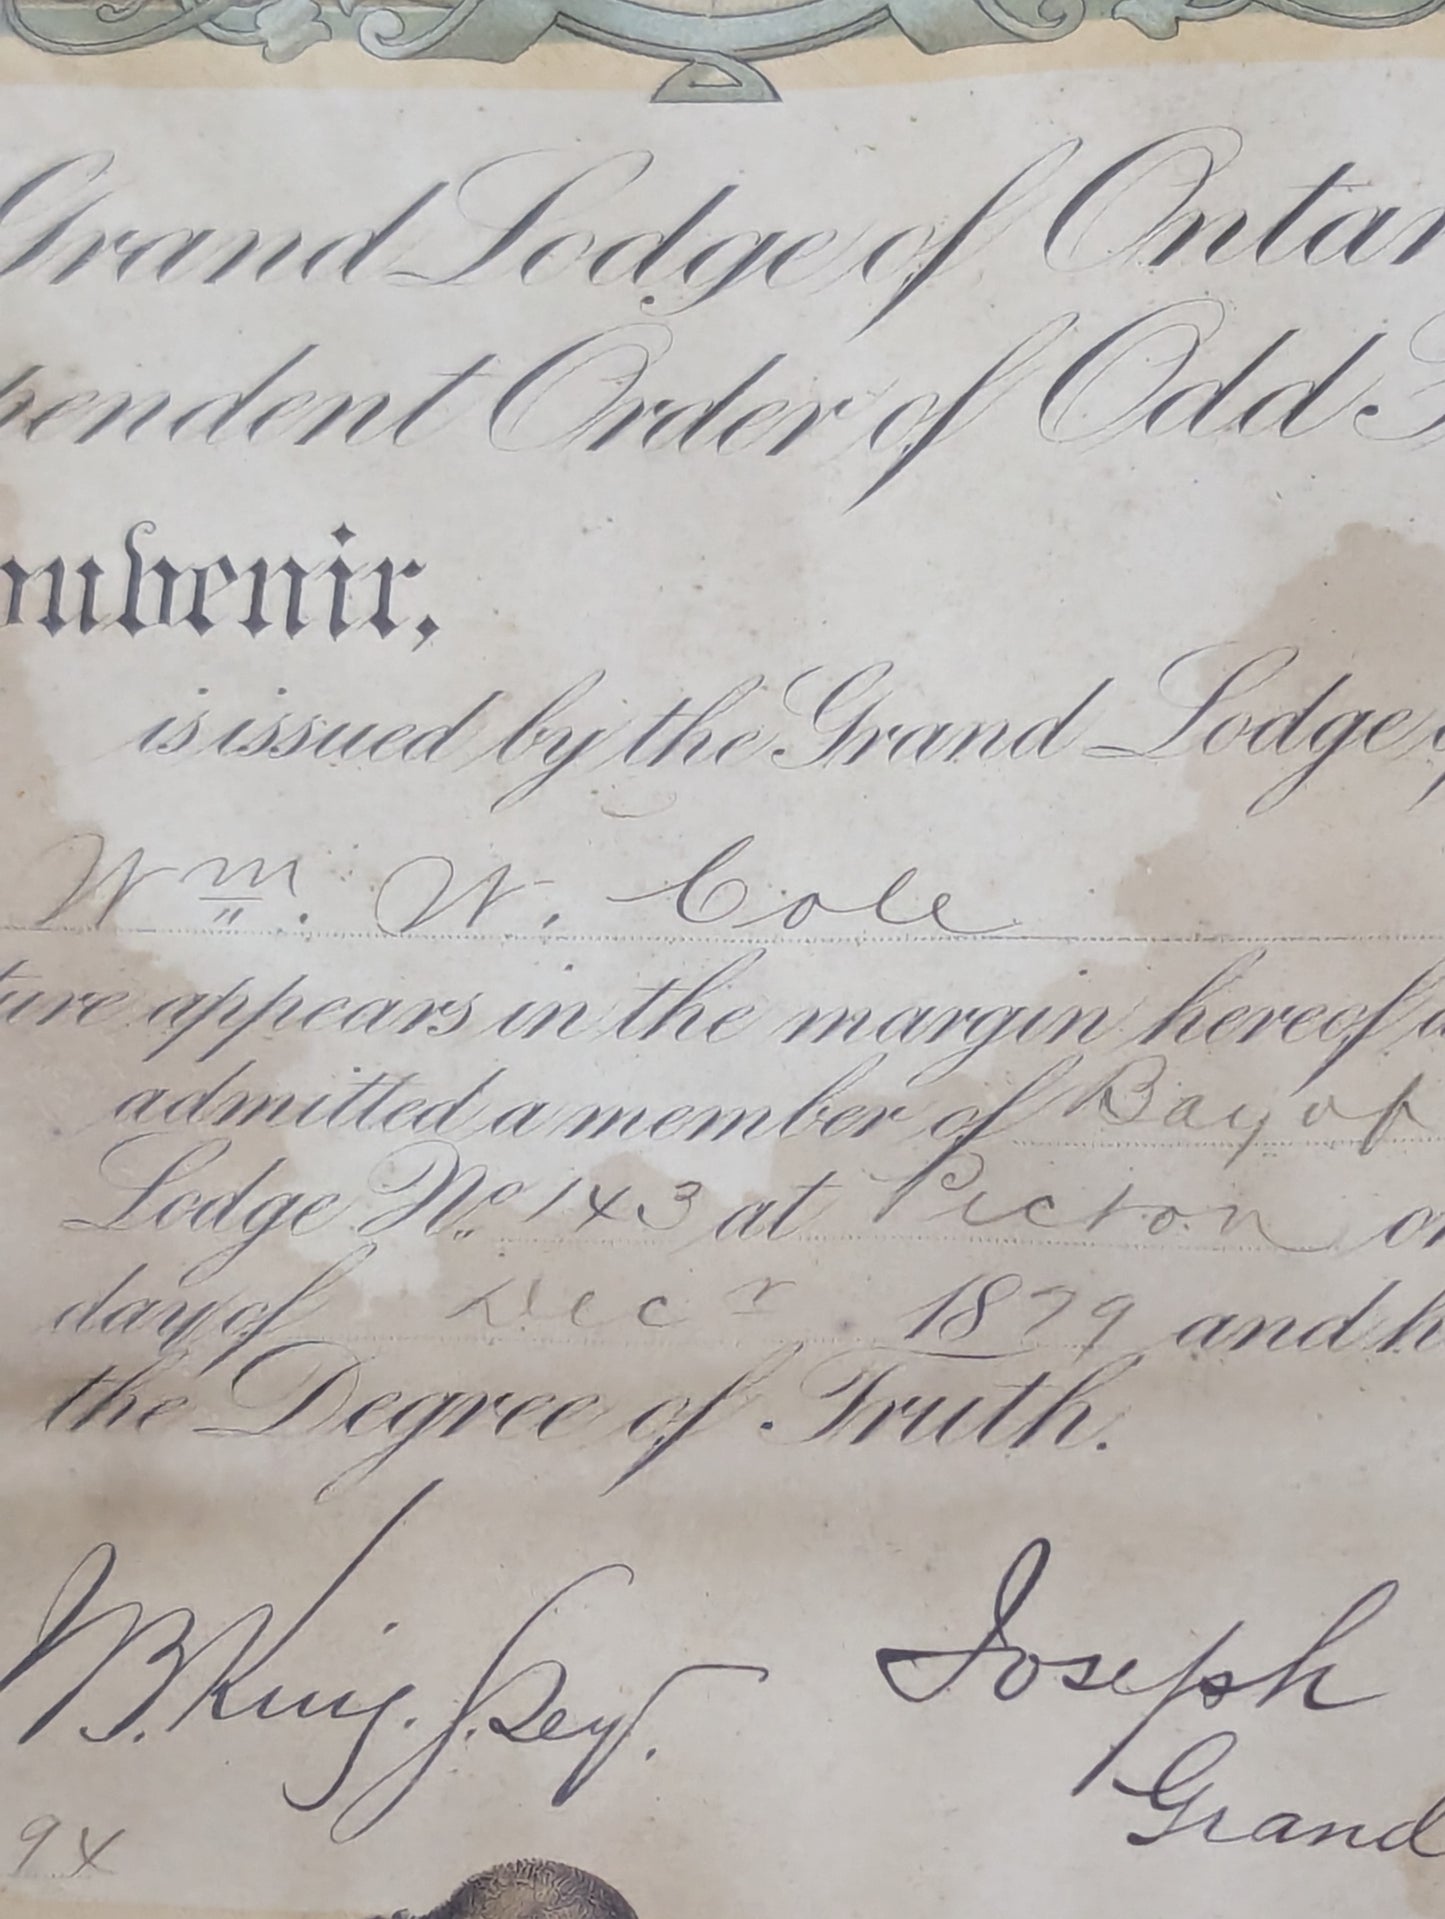 Grand Lodge of Ontar
pendent Order of Odd F
ouvenir,
is issued by the Grand Lodge o
Wm. W. Cole
ture appears in the margin hereof a
admitted a member of Bay of
Lodge No 143 at Picton on
day of Decr 1879 and h
the Degree of Truth.
B. King. G. Secy.
Joseph
Grand
94